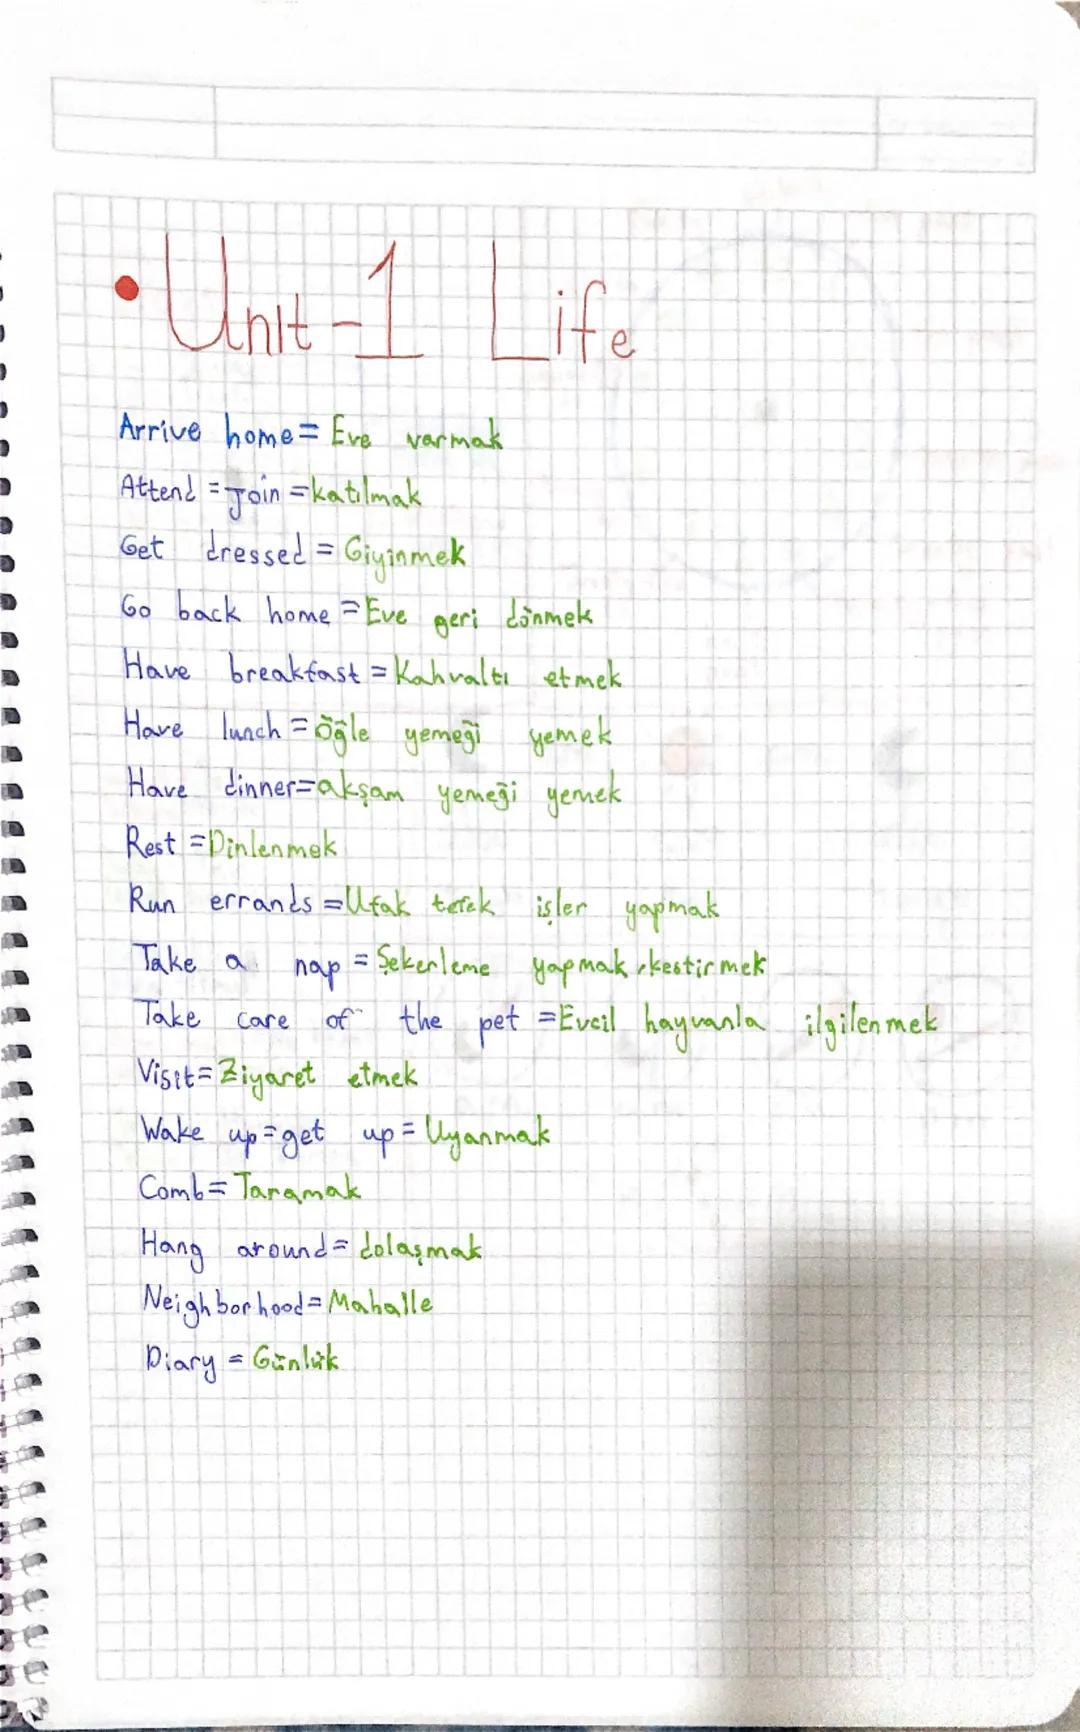 • Unit-1 Life
Arrive home = Eve varmak
Attend = Join = katılmak
Get dressed = Giyinmek
Go back home = Eve geri dönmek
Have breakfast = Kahvaltı etmek
Have lunch = öğle yemeği yemek
Have dinner = akşam yemeği yemek
Rest = Dinlenmek
Run errands = Ufak tefek işler yapmak
Take a nap = Şekerleme yapmak, kestirmek
Take care of the pet = Evcil hayvanla ilgilenmek
Visit = Ziyaret etmek
Wake up = get up = Uyanmak
Comb = Taramak
Hang around = dolaşmak
Neighborhood = Mahalle
Diary = Günlük